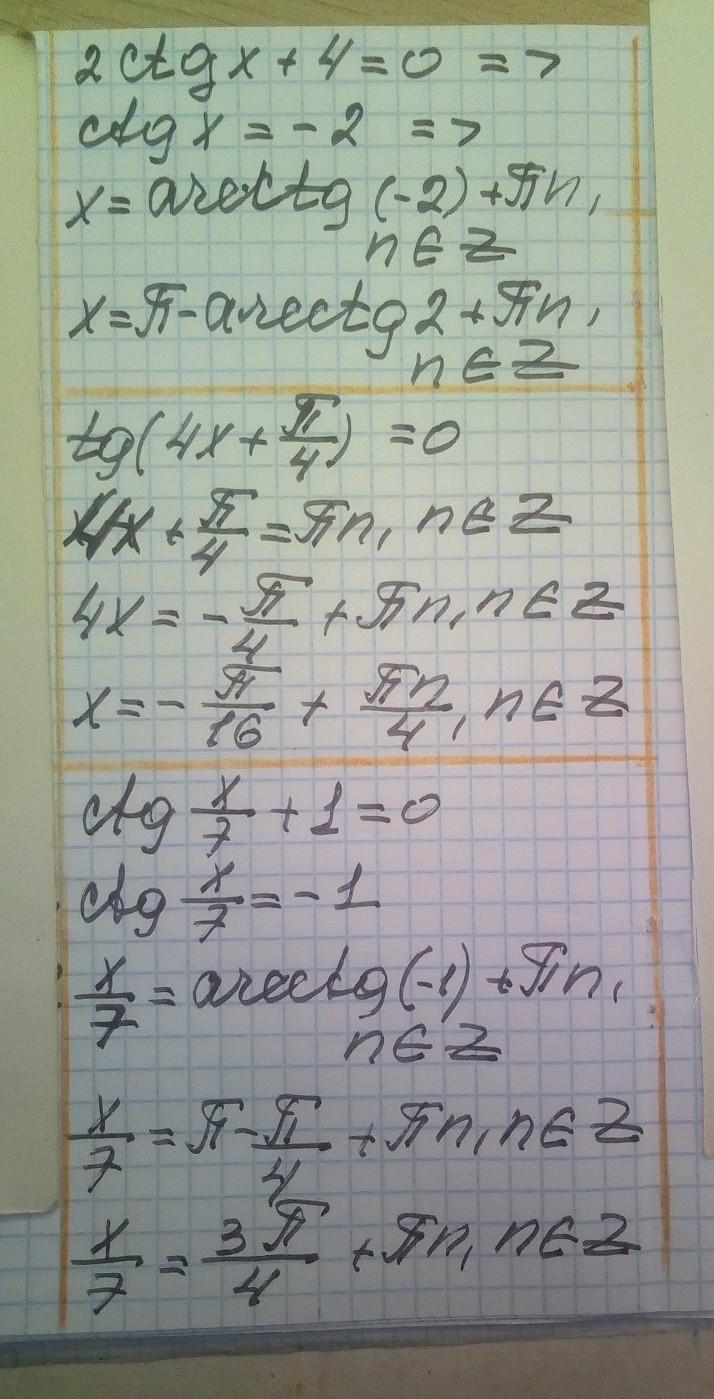 2 ctg x + 4 = 0 =>
ctg x = - 2 =>
x = arcctg (-2) + πn,
n ∈ Z
x = π - arcctg 2 + πn,
n ∈ Z
tg(4x + π/4) = 0
4x + π/4 = πn, n ∈ Z
4x = - π/4 + πn, n ∈ Z
x = - π/16 + πn/4, n ∈ Z
ctg x/7 + 1 = 0
ctg x/7 = - 1
x/7 = arcctg (-1) + πn,
n ∈ Z
x/7 = π - π/4 + πn, n ∈ Z
x/7 = 3π/4 + πn, n ∈ Z